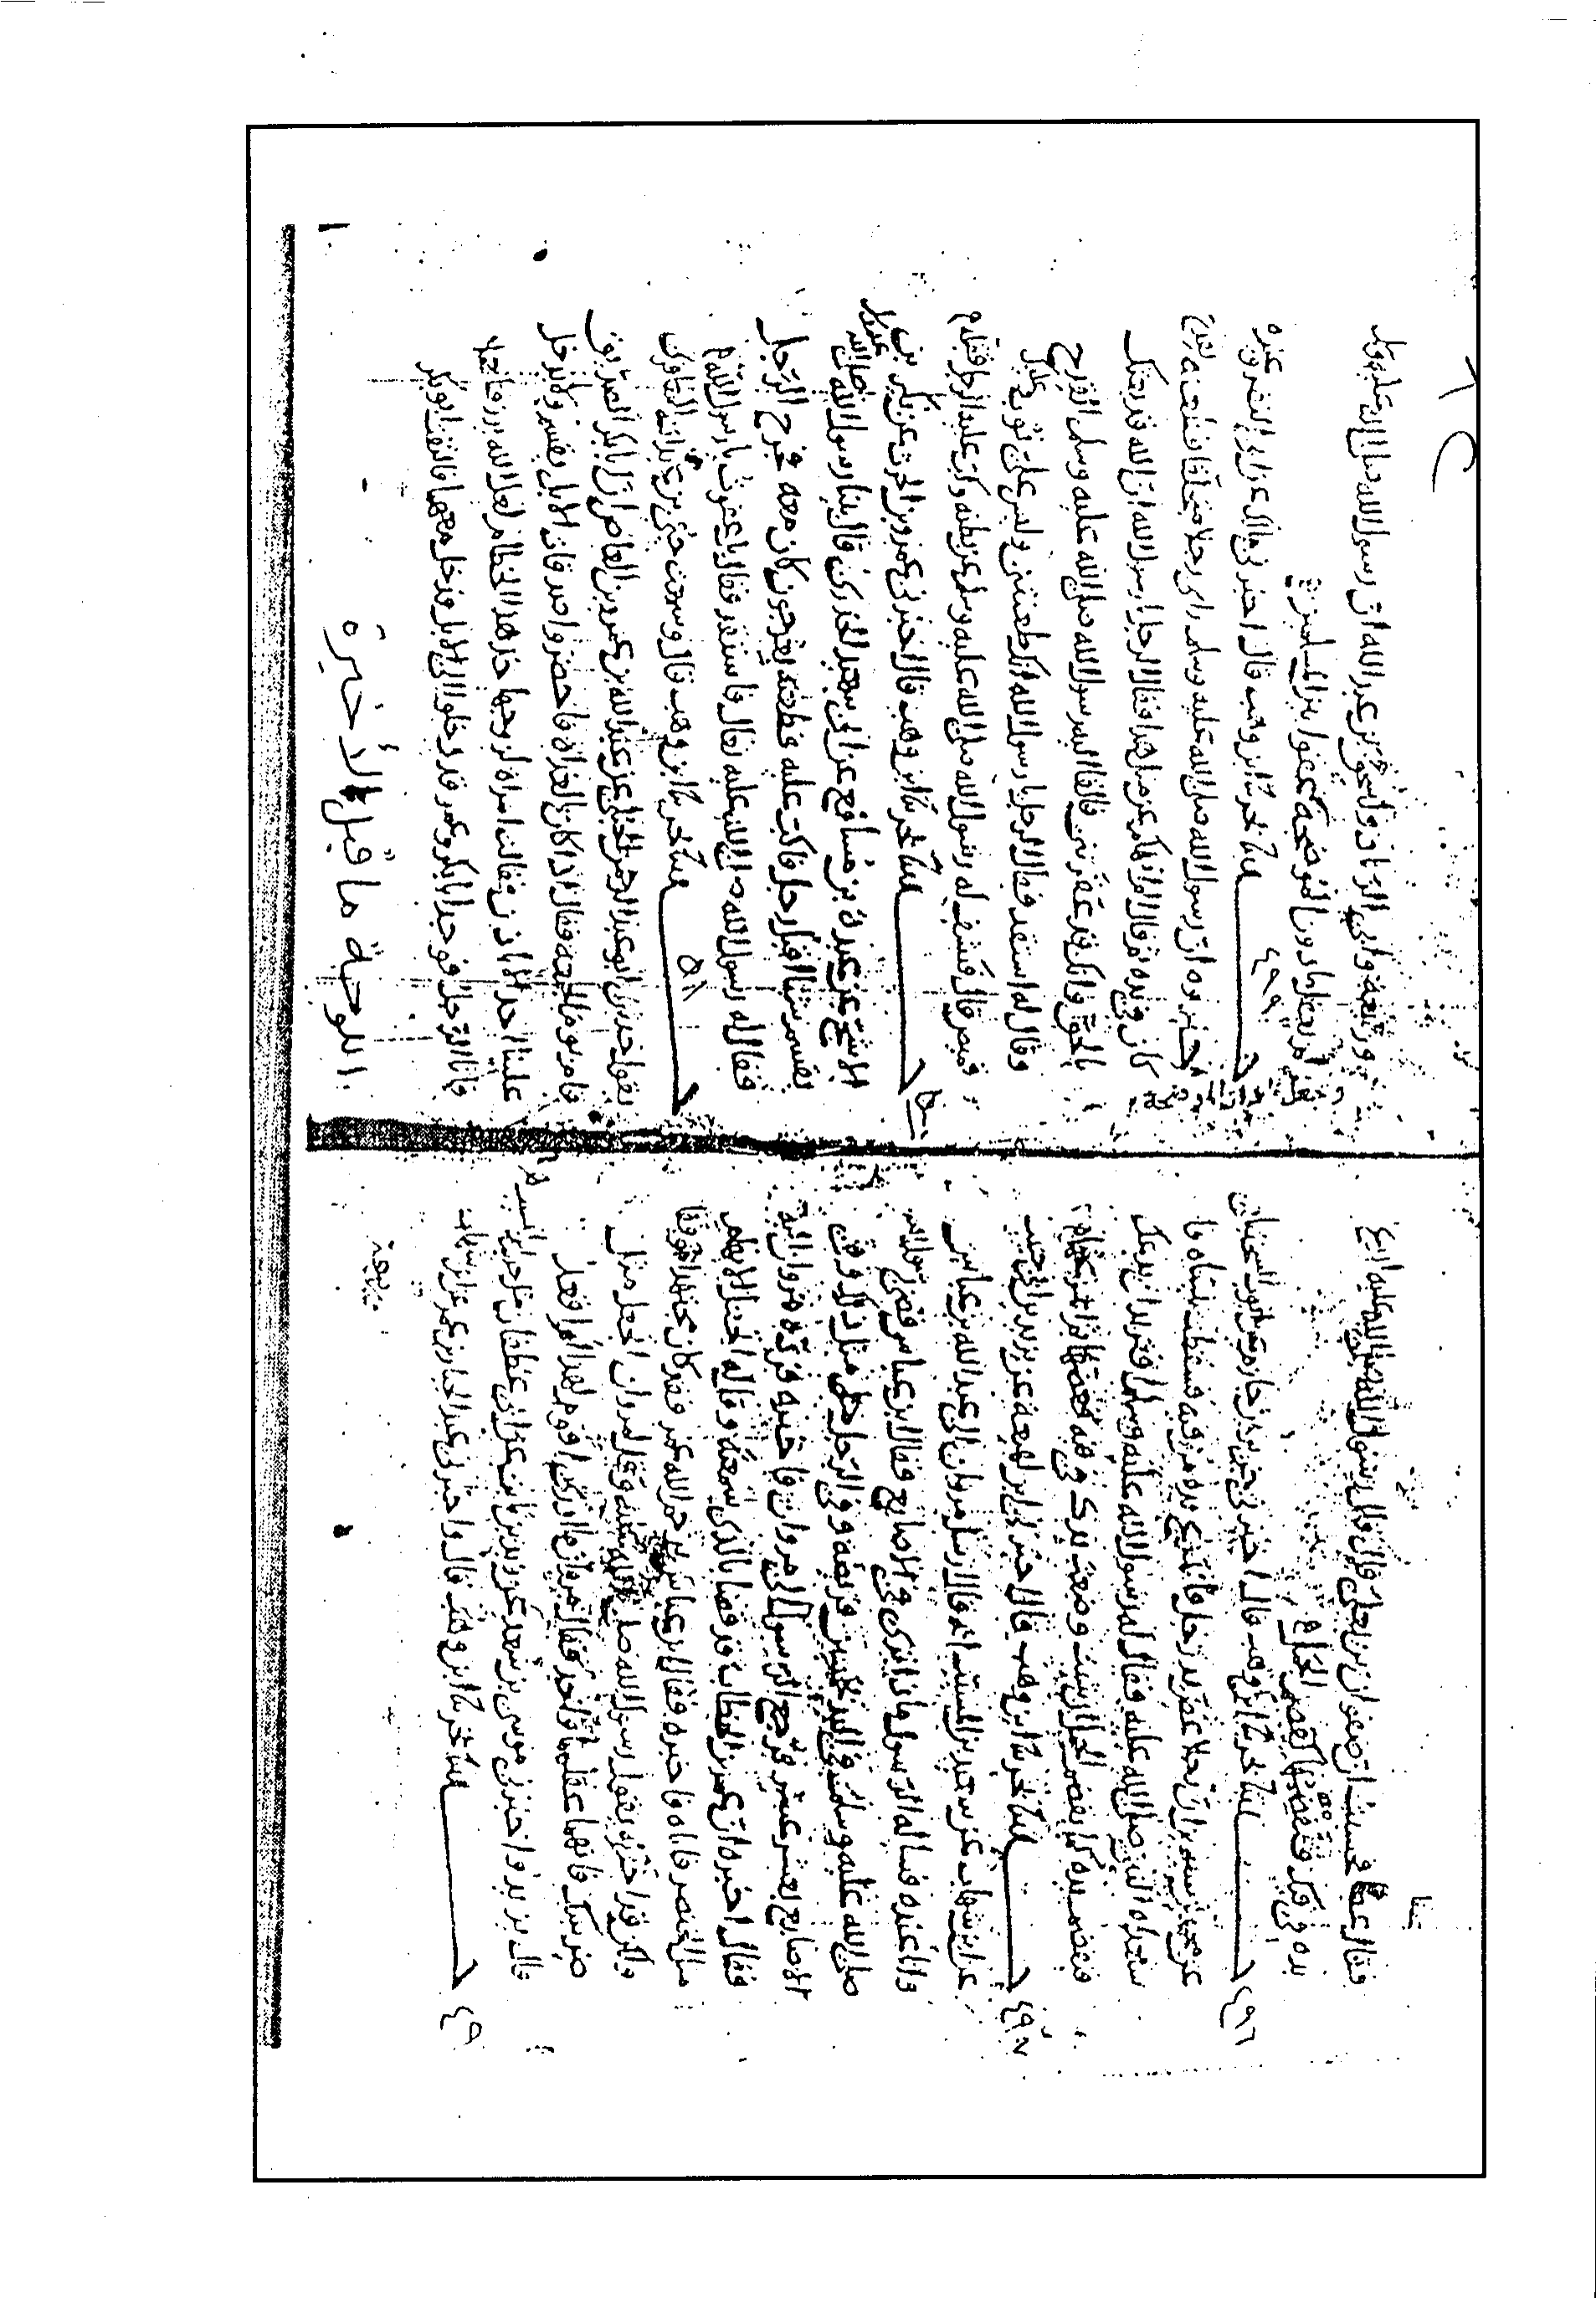 فقال عطا فحسبت ان صفوان بن يعلى قال قال رسول الله صلى الله عليه ايدع
يده في فيك فتقضمها كقضم الفحل
٤٩٦ حدثنا بحر نا ابن وهب قال اخبرني جرير بن حازم عن ايوب السختياني
عن محمد بن سيرين ان رجلا عض يد رجل فانتزع يده من فيه فسقطت ثنيتاه فا
ستعداه النبي صلى الله عليه فقال له رسول الله عليه وسلم اتريد ان يدعك
فتقضم يده كما يقضم الفحل ان شئت وضعت يدك في فيه فعضها ثم
٤٩٧ حدثنا بحر نا ابن وهب قال اخبرني ابن لهيعة عن يزيد بن ابي حبيب
عن ابن شهاب عن سعيد بن المسيب انه قال ارسل مروان الى عبد الله بن عباس
وانا عنده فساله الرسول ماذا ترى في الاصابع فقال ابن عباس قضى رسول الله
صلى الله عليه وسلم في اليد بخمسين فريضه وفي الرجل مثل ذلك وفي
الاصابع بعشر عشر فرجع الرسول الى مروان فاخبره فرده مروان اليه
فقال اخبره ان عمر بن الخطاب قد قضا بالذي سمعته وقال اجعل الابهام
من الخنصر فاتاه فاخبره فقال ابن عباس يرحم الله عمر فقد كان مجتهدا موفقا
ولكن قد اخبرته بقول رسول الله صلى الله عليه وقل لمروان اجعل مثل
ضرسك فانهما عقلهما واحد فقال مروان ما ادري اقوم لهذا ام اقعد
قال يزيد واخبرني موسى بن سعد عن زيد بن ثابت عن ابي غطفان مثل حديث ابن المسيب هذا
٤٩ حدثنا بحر نا ابن وهب قال واخبرني عبد الجبار بن عمر عن ابن شهاب
ربيعة
وربيعة وابي الزناد واسحق بن عبد الله ان رسول الله صلى الله عليه وسلم
لم يعقل ما دون الموضحة بين المسلمين
٤٩٩ حدثنا بحر نا ابن وهب قال اخبرني مالك عن ابي النضر وغيره
اخبره ان رسول الله صلى الله عليه وسلم راى رجلا متخلقا فطعنه بقدح
كان في يده ثم قال الم انهكم عن مثل هذا فقال الرجل يا رسول الله ان الله قد بعثك
بالحق وانك قد عقرتني فالقا اليه رسول الله صلى الله عليه وسلم القدح
وقال له استقد فقال الرجل يا رسول الله انك طعنتني وليس علي ثوب وعليك
قميص قال فكشف له رسول الله صلى الله عليه وسلم عن بطنه فاكب عليه الرجل فقبله
حدثنا بحر نا ابن وهب قال اخبرني عمرو بن الحرث عن بكير بن
الاشج عن عبيدة بن مسافع عن ابي سعيد الخدري قال بينا رسول الله صلى الله عليه
يقسم شيئا اقبل رجل فاكب عليه فطعنه بعرجون كان معه فجرح الرجل
فقال له رسول الله صلى الله عليه تعال فاستقد فقال بل عفوت يا رسول الله
حدثنا بحر نا ابن وهب قال وسمعت حيي بن عبد الله المعافري
يقول حدثني ابو عبد الرحمن الحبلي عن عبد الله بن عمرو بن العاص ان ابا بكر الصديق
قام يوم الجمعة فقال اذا كان بالغداة فاحضروا الابل نقسم ولا يدخل
علينا احد الا باذن فقالت امراة لزوجها خذ هذا الخطام لعل الله يرزقنا جملا
فاتا الرجل فوجد ابا بكر وعمر قد دخلوا الى الابل فدخل معهما فالتفت ابو بكر
اللوحة ما قبل الأخيرة